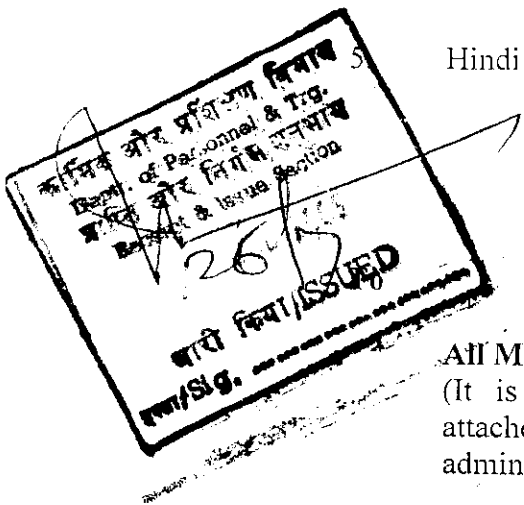 5
Hindi
कार्मिक और प्रशिक्षण विभाग
Deptt. of Personnel & Trg.
और निर्गम अनुभाग
& Issue Section
26
जारी किया/ISSUED
/Sig. ....................
All M
(It is
attache
admin